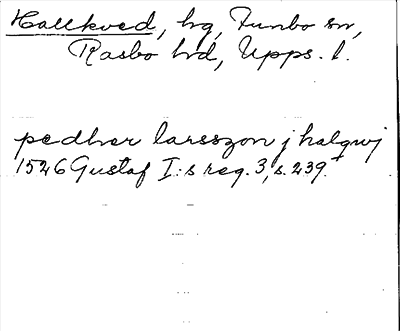 Hallkved, hg, Funbo sn,
Rasbo hd, Upps. l.
pedher larsszon j halqwj
1526 Gustaf I:s reg. 3, s. 239.